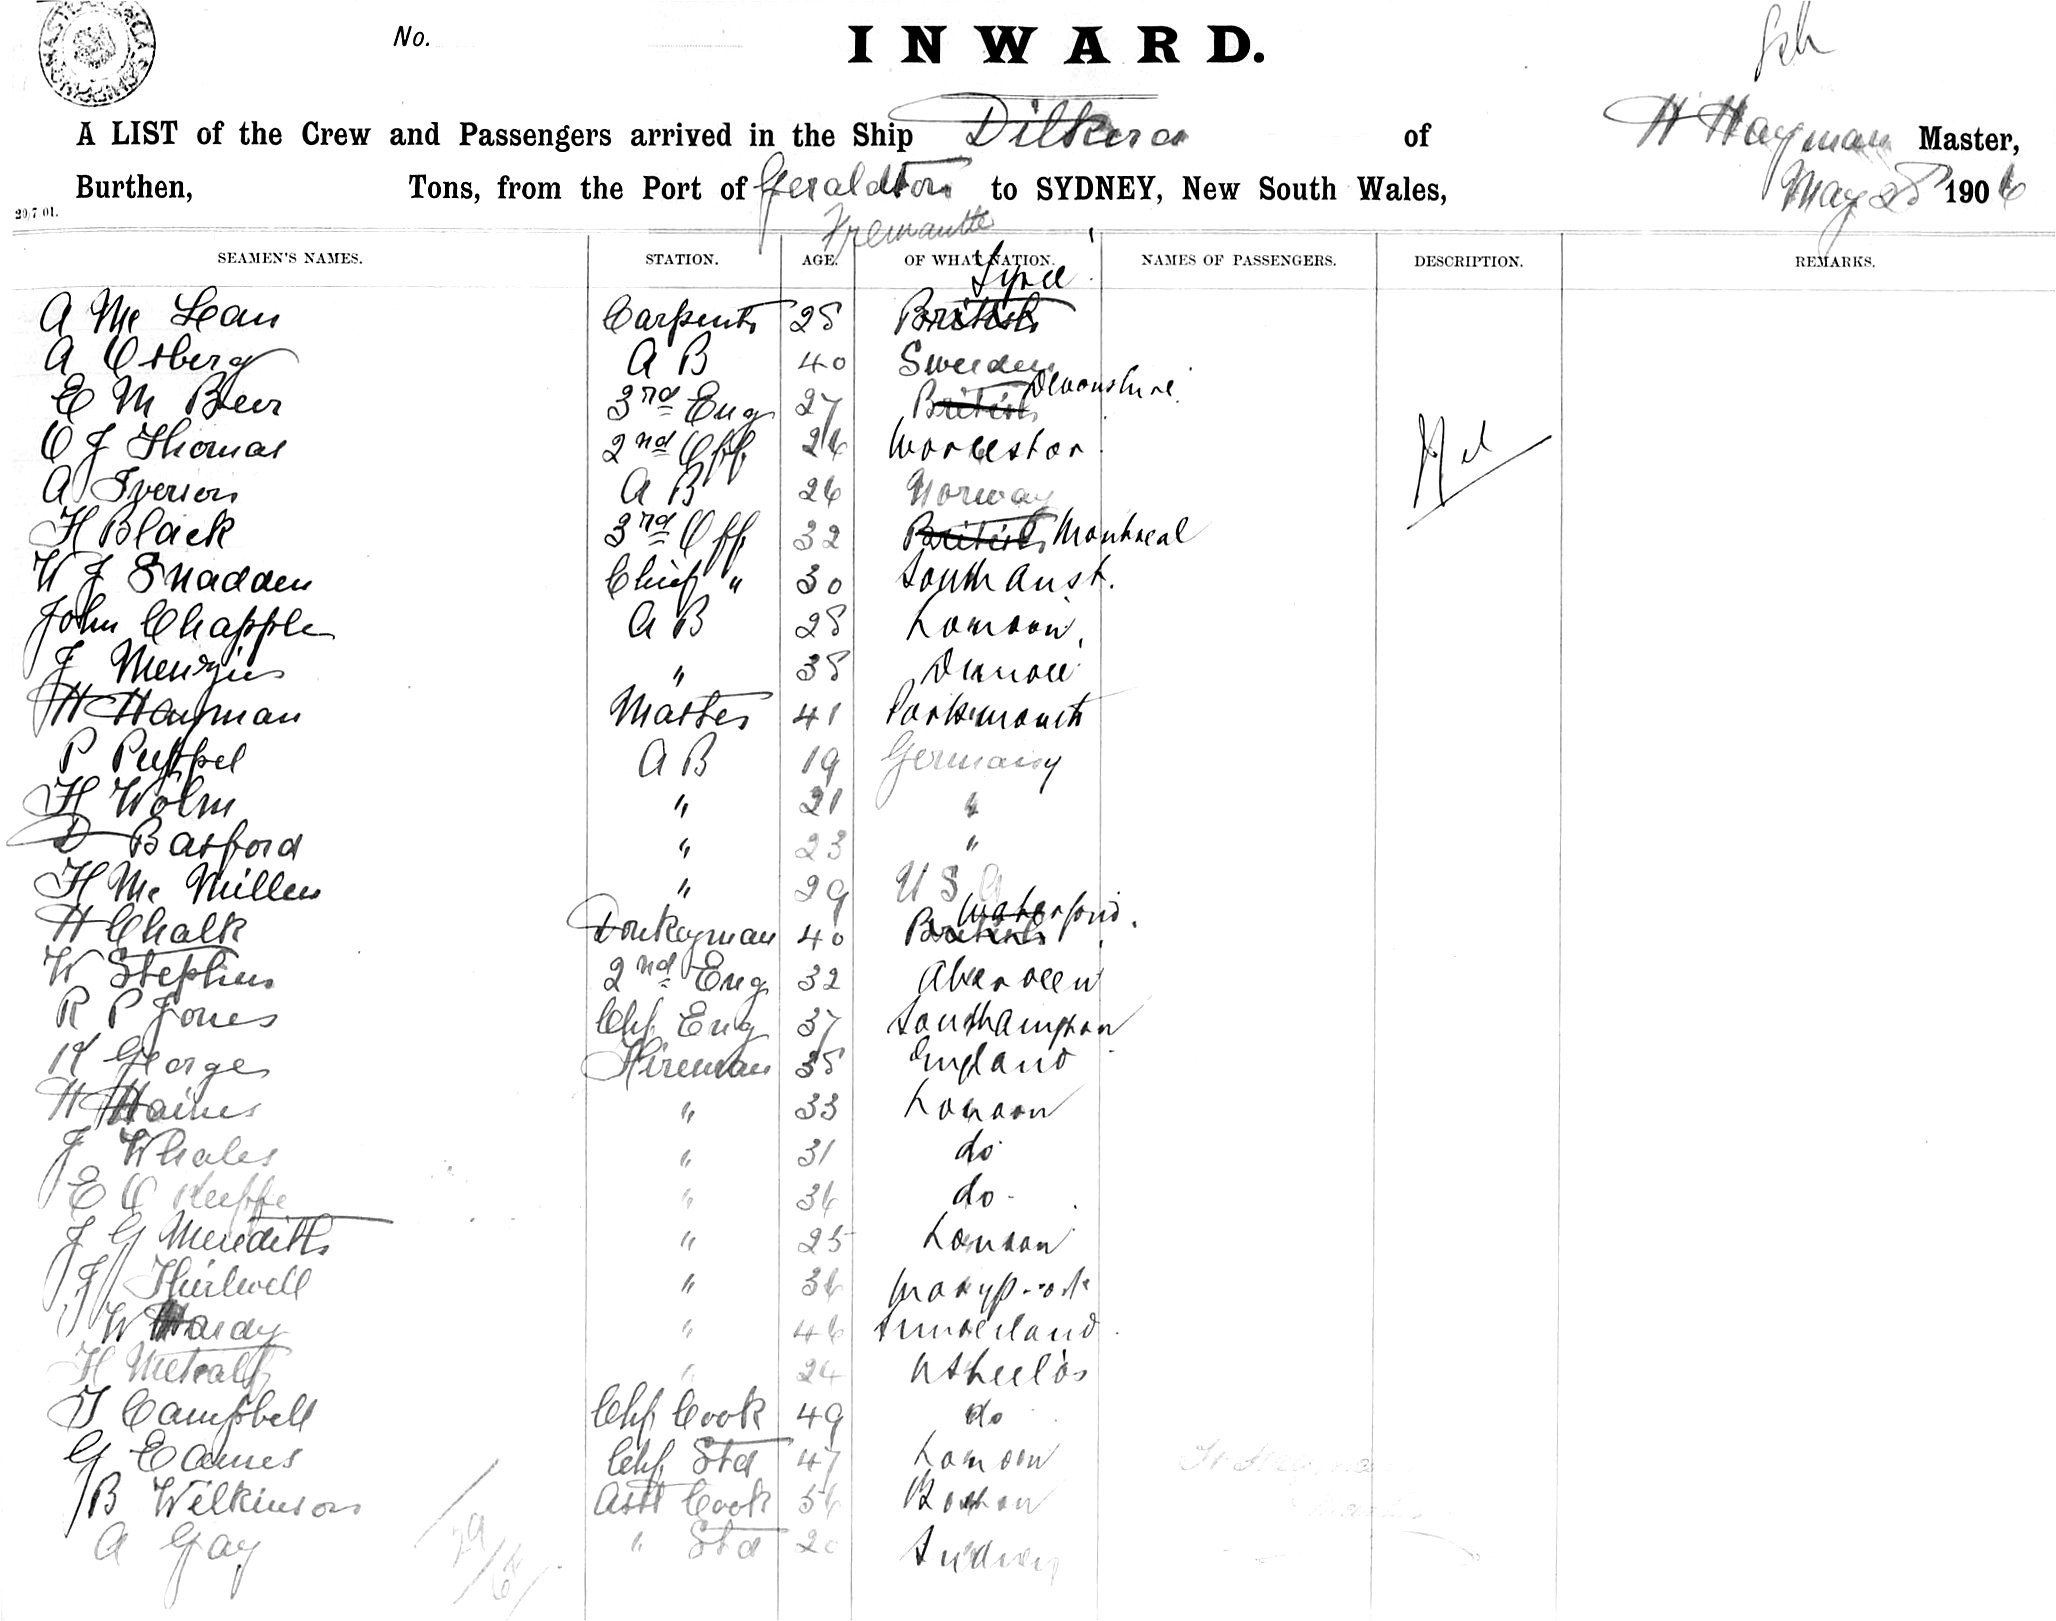 No.
INWARD.
A LIST of the Crew and Passengers arrived in the Ship Dilkera of H Hayman Master,
Burthen, Tons, from the Port of Geraldton to SYDNEY, New South Wales, May 28 1906
Fremantle
29/7/01.
SEAMEN'S NAMES. STATION. AGE. OF WHAT NATION. NAMES OF PASSENGERS. DESCRIPTION. REMARKS.
A Mc Lean Carpenter 28 British
A Osberg A B 40 Sweden
E M Beer 3rd Eng 27 British Devonshire
O J Thomas 2nd Off 26 Worcester
A Iverson A B 26 Norway
H Black 3rd Off 32 British Montreal
W J Snadden Chief " 30 South Aust.
John Chapple A B 28 London
J Menzies " 38 Dundee
H Hayman Master 41 Portsmouth
P Puppel A B 19 Germany
H Wolm " 21 "
D Basford " 23 "
H Mc Millen " 29 U S A
H Chalk Donkeyman 40 British Waterford.
W Stephens 2nd Eng 32 Aberdeen
R P Jones Chf Eng 37 Southampton
H George Fireman 38 England
H Haines " 33 London
J Whales " 31 do
E C " 36 do
J G Meredith " 25 London
J Thirlwell " 36 Maryport
W Hardy " 46 Sunderland
H Metcalf " 24
T Campbell Chf Cook 49 do
G Eames Chf Std 47 London
B Wilkinson Asst Cook 56 Boston
A Gay " Std 20 Sydney